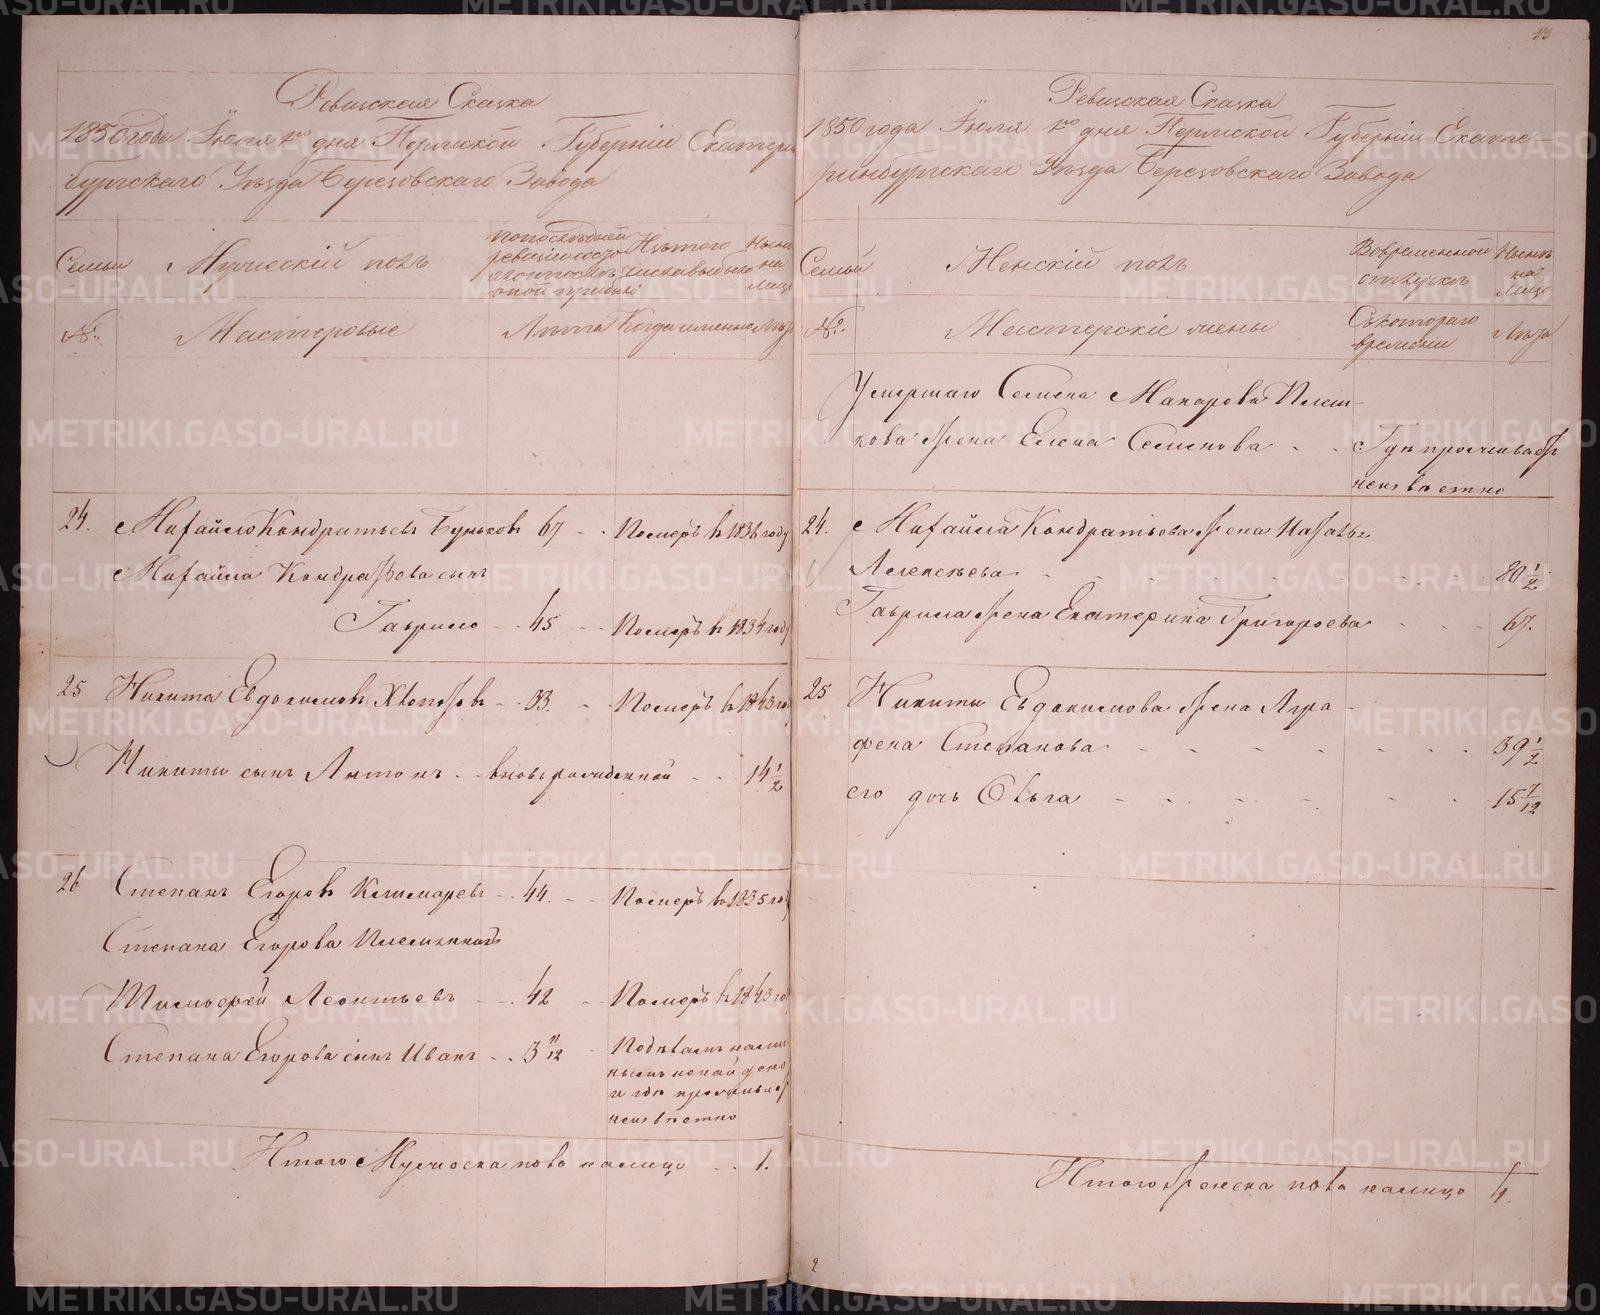 Ревизская Сказка
1850 года Іюля 1го дня Пермской Губерніи Екатерин
бургскаго Уезда Березовскаго Завода
Семьи
Мужескій полъ
по последней ревизіи состояло
Изъ того числа выбыло
Ныне на лицо
№
Мастеровые
Лета
Когда именно
Лета
24. Михайло Кондратьевъ Буньковъ 67 Померъ въ 1836 году
Михайла Кондратьева сынъ
Гаврило 45 Померъ в 1834 году
25 Никита Евдокимовъ Хлопотовъ 33. Померъ в 1843 году
Никиты сынъ Антонъ вновь рожденной 14 1/2
26 Степанъ Егоровъ 44. Померъ въ 1835 году
Степана Егорова Племянникъ
Тимофей Леонтьевъ 42 Померъ в 1843 году
Степана Егорова сынъ Иванъ 3 11/12
и где проживаетъ
неизвестно
Итого Мужеска пола налицо 1.
13
Ревизская Сказка
1850 года Іюля 1го дня Пермской Губерніи Екате-
ринбургскаго Уезда Березовскаго Завода
Семьи
Женскій полъ
Во временной отлучке
Ныне на Лицо
№
Мастерскіе жены
Съ котораго времени
Лета
Умершаго Семена Макарова Плеш-
кова жена Елена Семенова Где проживаетъ
неизвестно
24. Михайла Кондратьева жена Наталья
Алексеева 80 1/2
Гаврила жена Екатерина Григорьева 67.
25 Никиты Евдокимова жена Агра-
фена Степанова 39 1/2
его дочь Ольга 15 7/12
Итого женска пола налицо 4.
2
METRIKI.GASO-URAL.RU